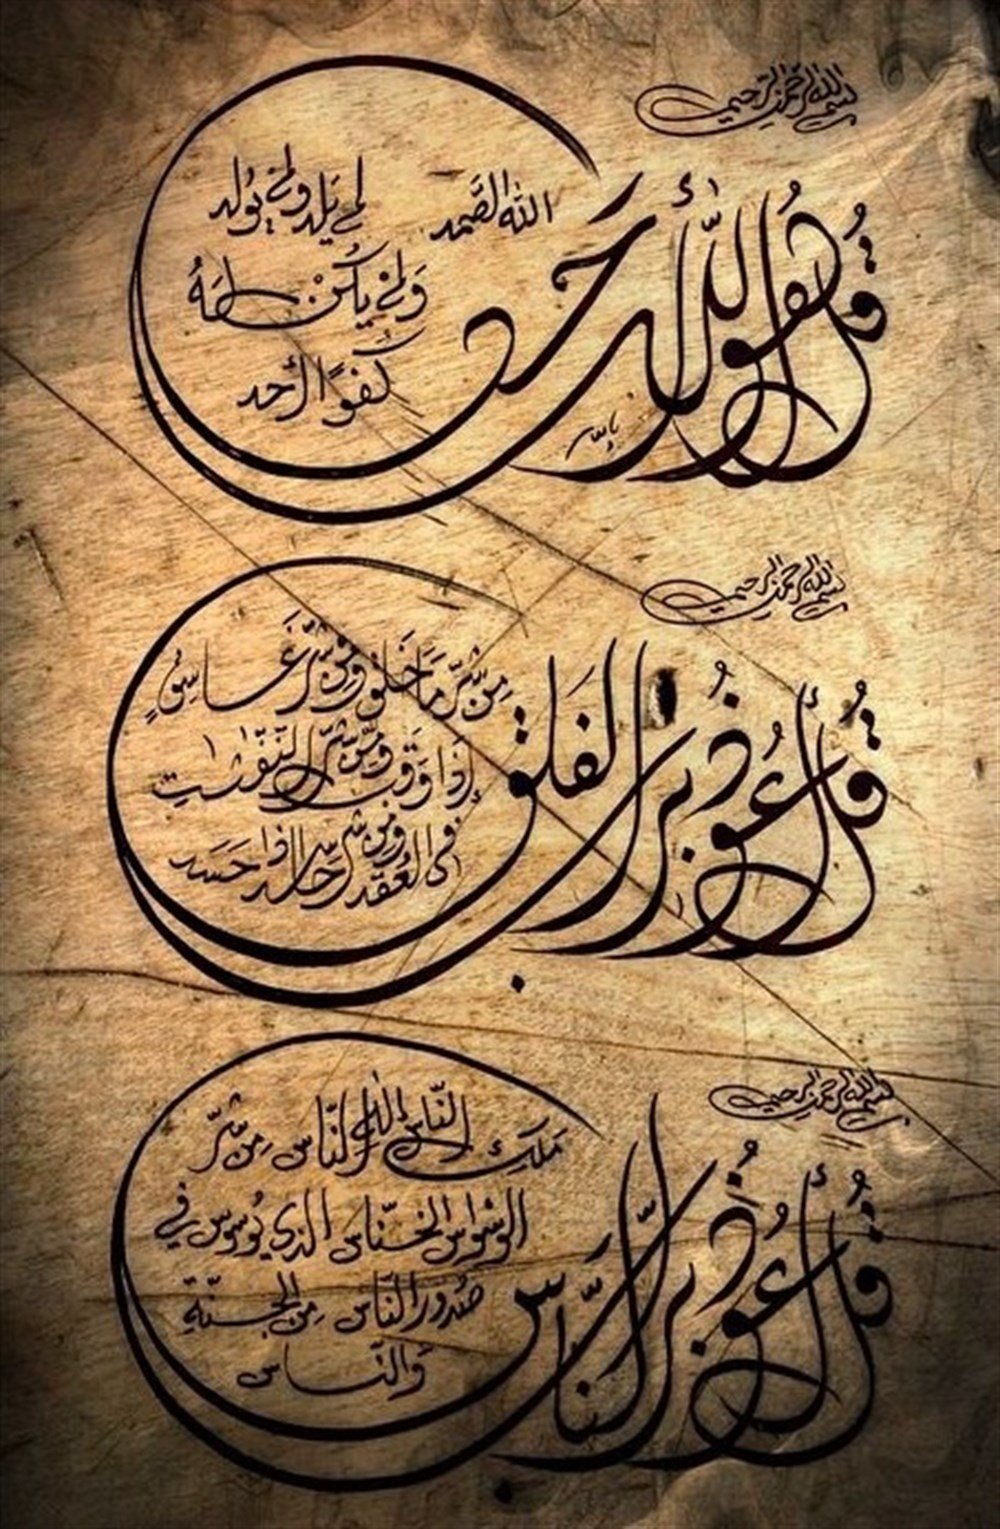 بسم الله الرحمن الرحيم
قُل هُو اللّٰه أحد
اللّٰه الصَّمد
لم يَلد ولم يُولد
وَلم يَكُنْ لهُ
كُفوًا أحد
بسم الله الرحمن الرحيم
قُل أعُوذُ برب الفَلَق
مِن شَرّ مَا خَلق ومِن شَرّ غَاسِقٍ
إذَا وَقَب ومِن شَرّ النّفّٰثٰتِ
في العُقَد ومِن شر حاسد اذا حَسَد
بسم الله الرحمن الرحيم
قُل أعُوذُ برَبّ النَّاس
مَلِكِ النّاس إلٰه النّاس مِن شَرّ
الوَسْوَاس الخنّاس الذي يُوسوس في
صُدُور النَّاس مِن الجِنّةِ
وَالنّاس